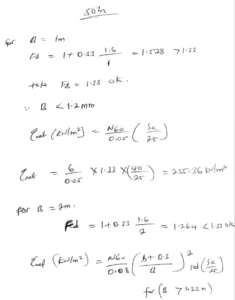 soln
for B = 1m
Fd = 1 + 0.33 1.6/1 = 1.528 > 1.33
take Fd = 1.33 ok.
∴ B < 1.2 mm
(kN/m²) = N60/0.05 (Se/25)
= 6/0.05 × 1.33 × (40/25) = 255.36 kN/m²
for B = 2m.
Fd = 1 + 0.33 1.6/2 = 1.264 < 1.33 ok
(kN/m²) = N60/0.08 (B + 0.3/B)² Fd (Se/25)
for (B > 1.22m)